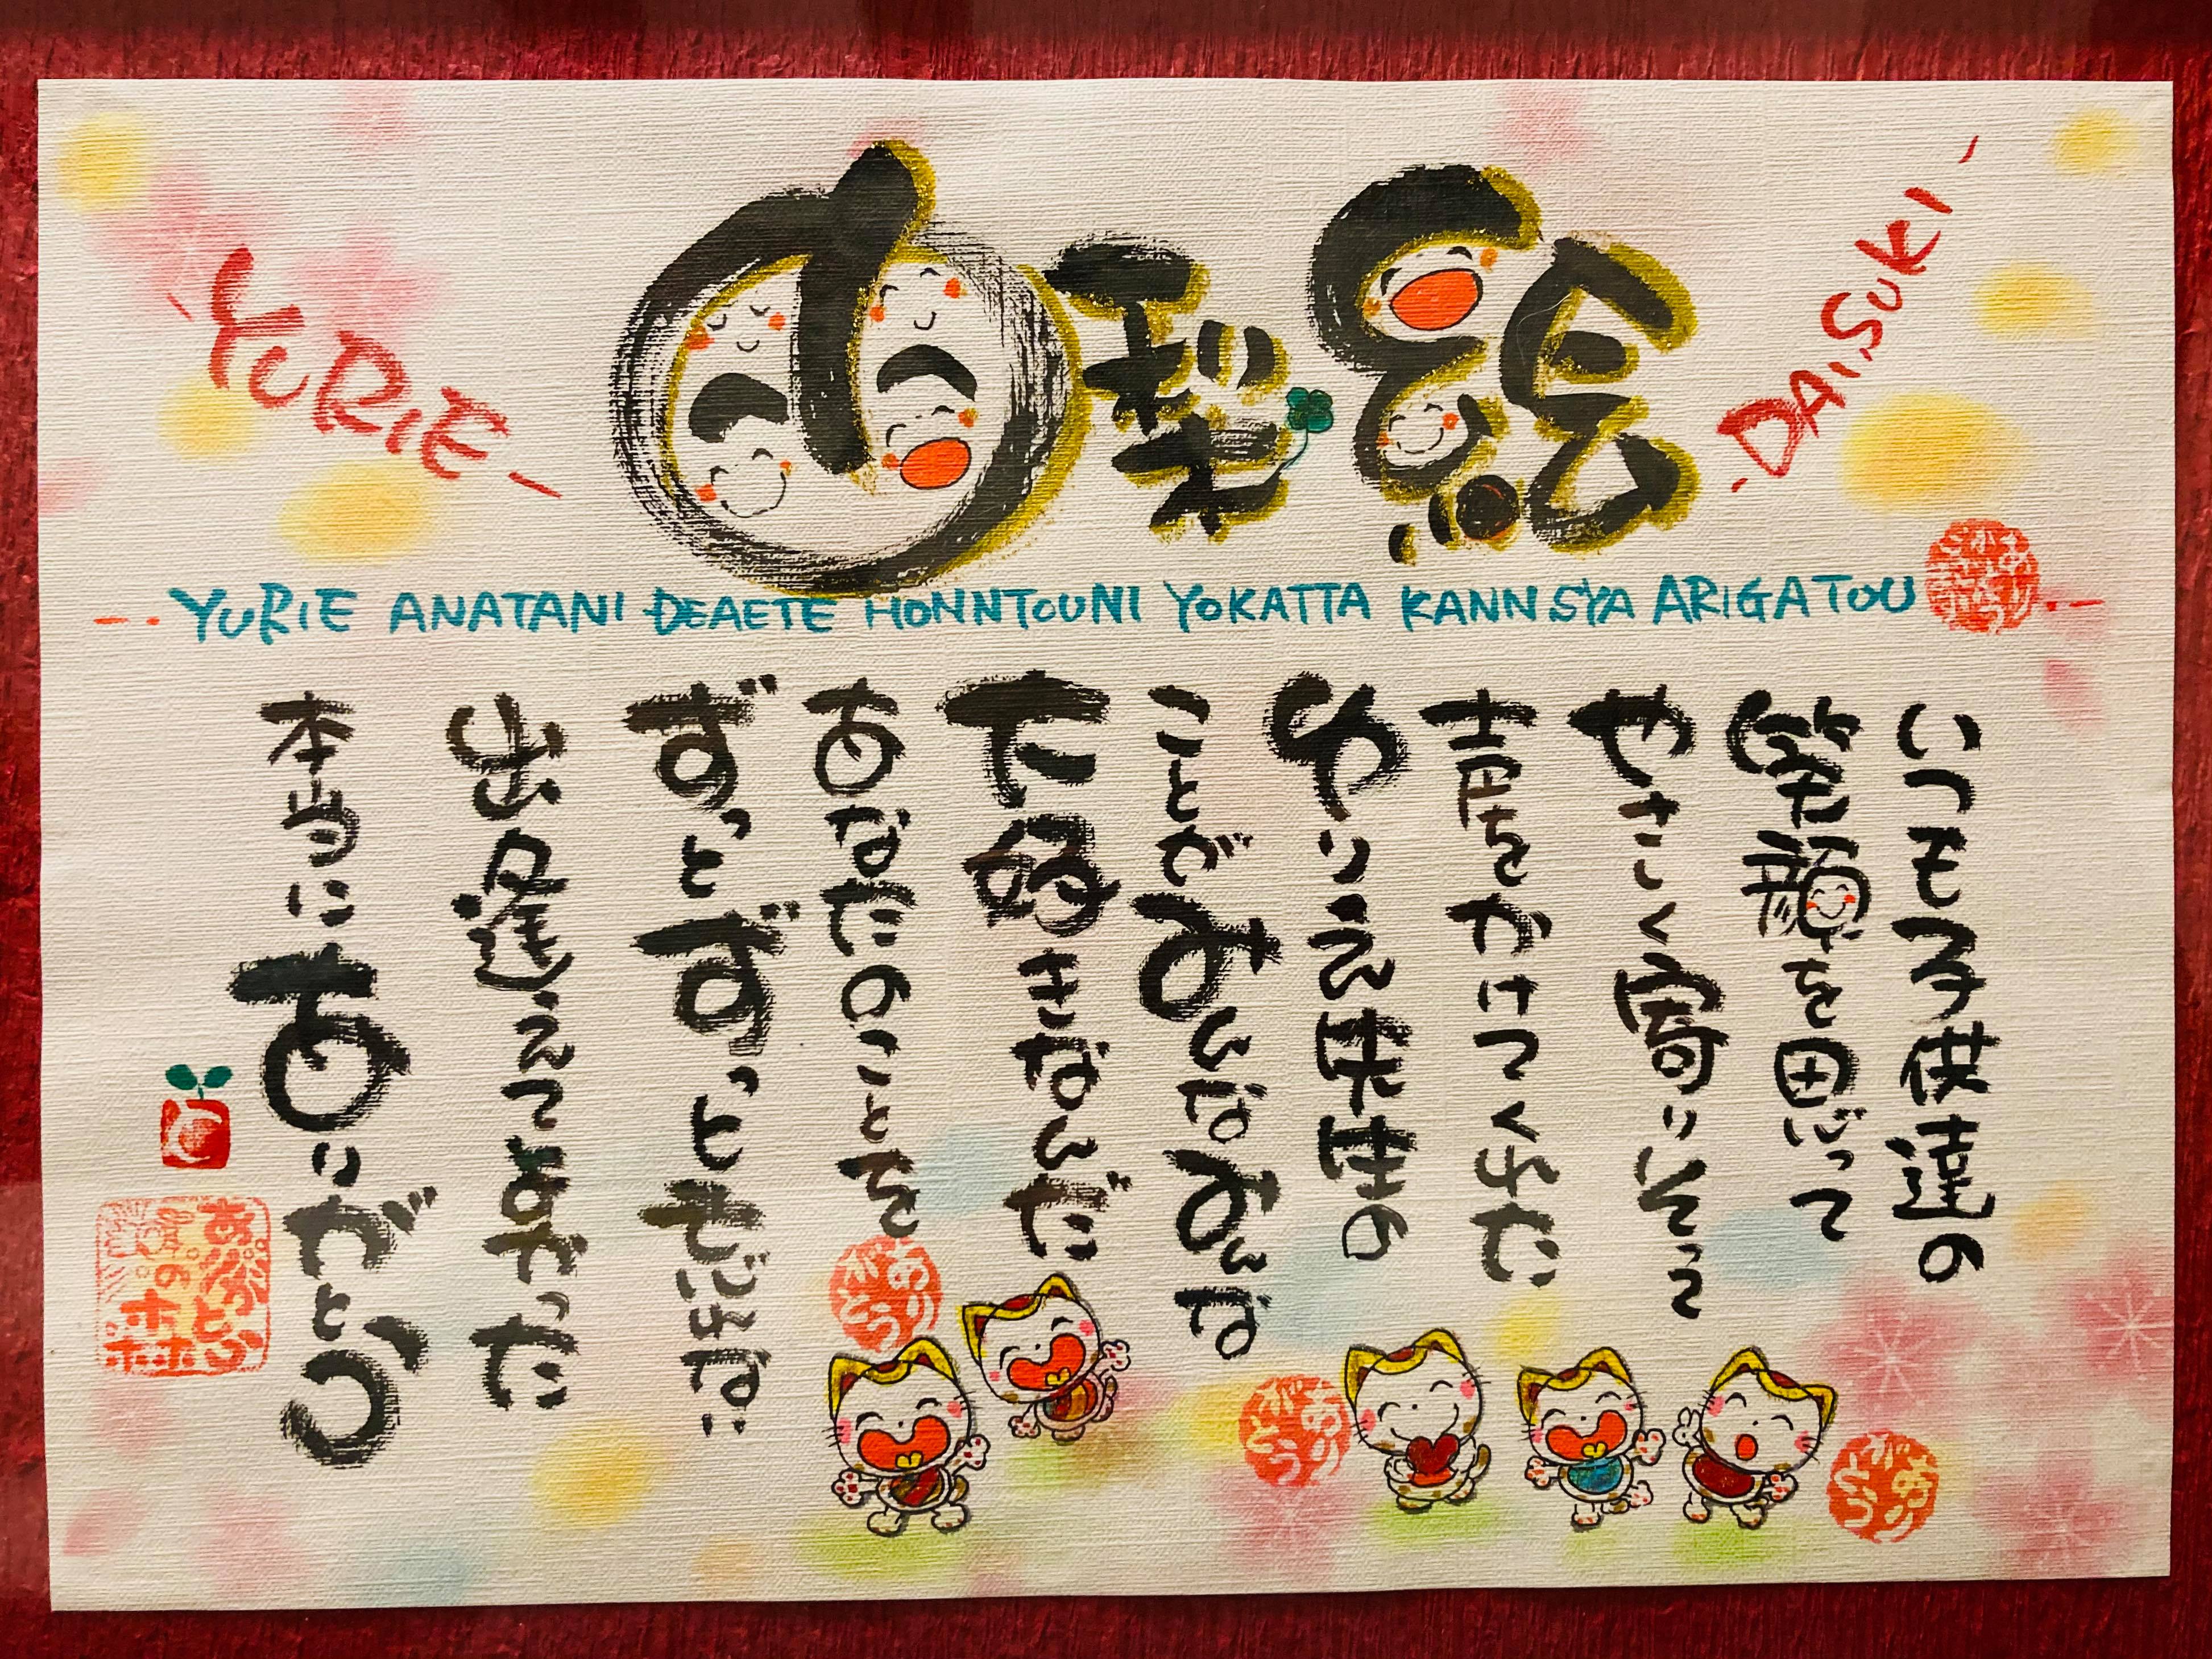 -YURIE-
由梨絵
-DAISUKI-
YURIE ANATANI DEAETE HONNTOUNI YOKATTA KANNSYA ARIGATOU
ありがとう
いつも子供達の
笑顔を思って
やさしく寄りそって
声をかけてくれた
ゆりえ先生の
ことがみんなみんな
大好きなんだ
あなたのことを
ずっとずっと忘れない
出逢えてよかった
本当にありがとう
ありがとう
ありがとう
ありがとう